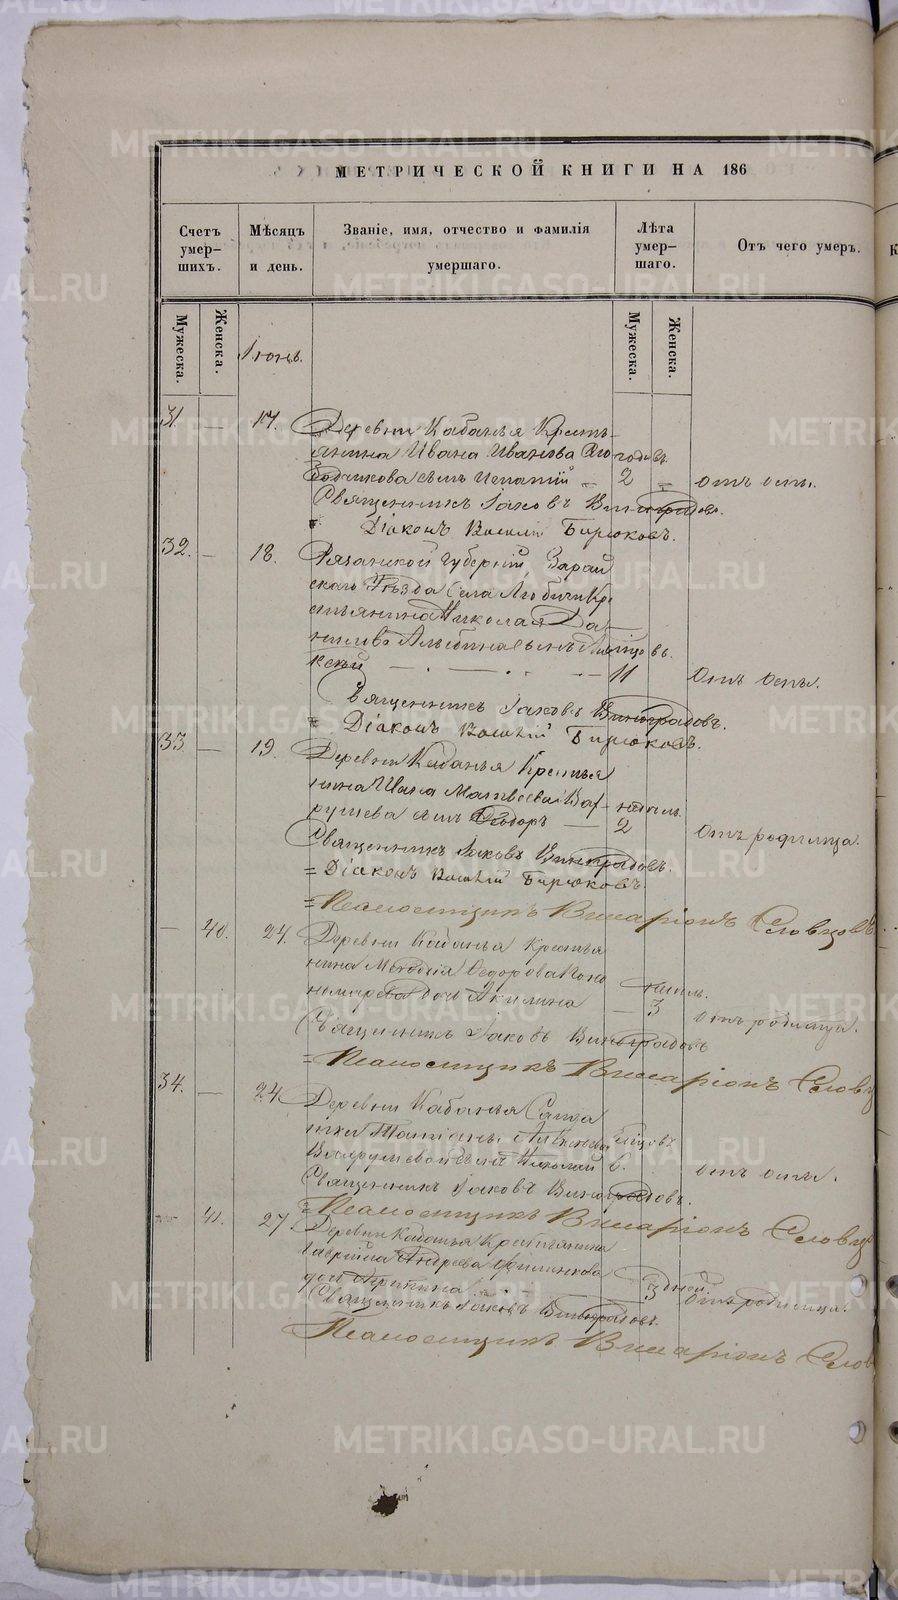 МЕТРИЧЕСКОЙ КНИГИ НА 186
Счетъ умер-шихъ.
Мѣсяцъ и день.
Званіе, имя, отчество и фамилія умершаго.
Лѣта умер-шаго.
Отъ чего умеръ.
Мужеска.
Женска.
Мужеска.
Женска.
Іюнь.
31. — 17. Деревни Кабанья Кресть-
янина Ивана Иванова годовъ
сынъ Ипатій 2 отъ оспы.
Священникъ Іаковъ Виноградовъ.
Діаконъ Василій Бирюковъ.
32. — 18. Рязанской Губерніи, Зарай
скаго Уѣзда Села Любичи Кре
стьянина Николая Да-
нилова сынъ
11 отъ оспы.
Священникъ Іаковъ Виноградовъ.
= Діаконъ Василій Бирюковъ.
33 — 19. Деревни Кабанья Крестья
нина Ивана Матвѣева недѣль
сынъ Ѳеодоръ — 2 отъ родимца.
Священникъ Іаковъ Виноградовъ.
= Діаконъ Василій Бирюковъ.
= Псаломщикъ Виссаріонъ Словцовъ
— 40. 24. Деревни Кабанья Крестья
нина Меѳодія Ѳедорова Поно
марева дочь Акилина — 3 отъ родимца.
Священникъ Іаковъ Виноградовъ
= Псаломщикъ Виссаріонъ Словц
34. — 24 Деревни Кабанья Солда
тки Татіаны
сынъ Николай 6. отъ оспы.
Священникъ Іаковъ Виноградовъ.
= Псаломщикъ Виссаріонъ Словц
41. 27. Деревни Кабанья Крестьянина
Гавріила Андреева Филинкова
дочь 3 дней. отъ родимца.
Священникъ Іаковъ Виноградовъ.
Псаломщикъ Виссаріонъ Слов
METRIKI.GASO-URAL.RU